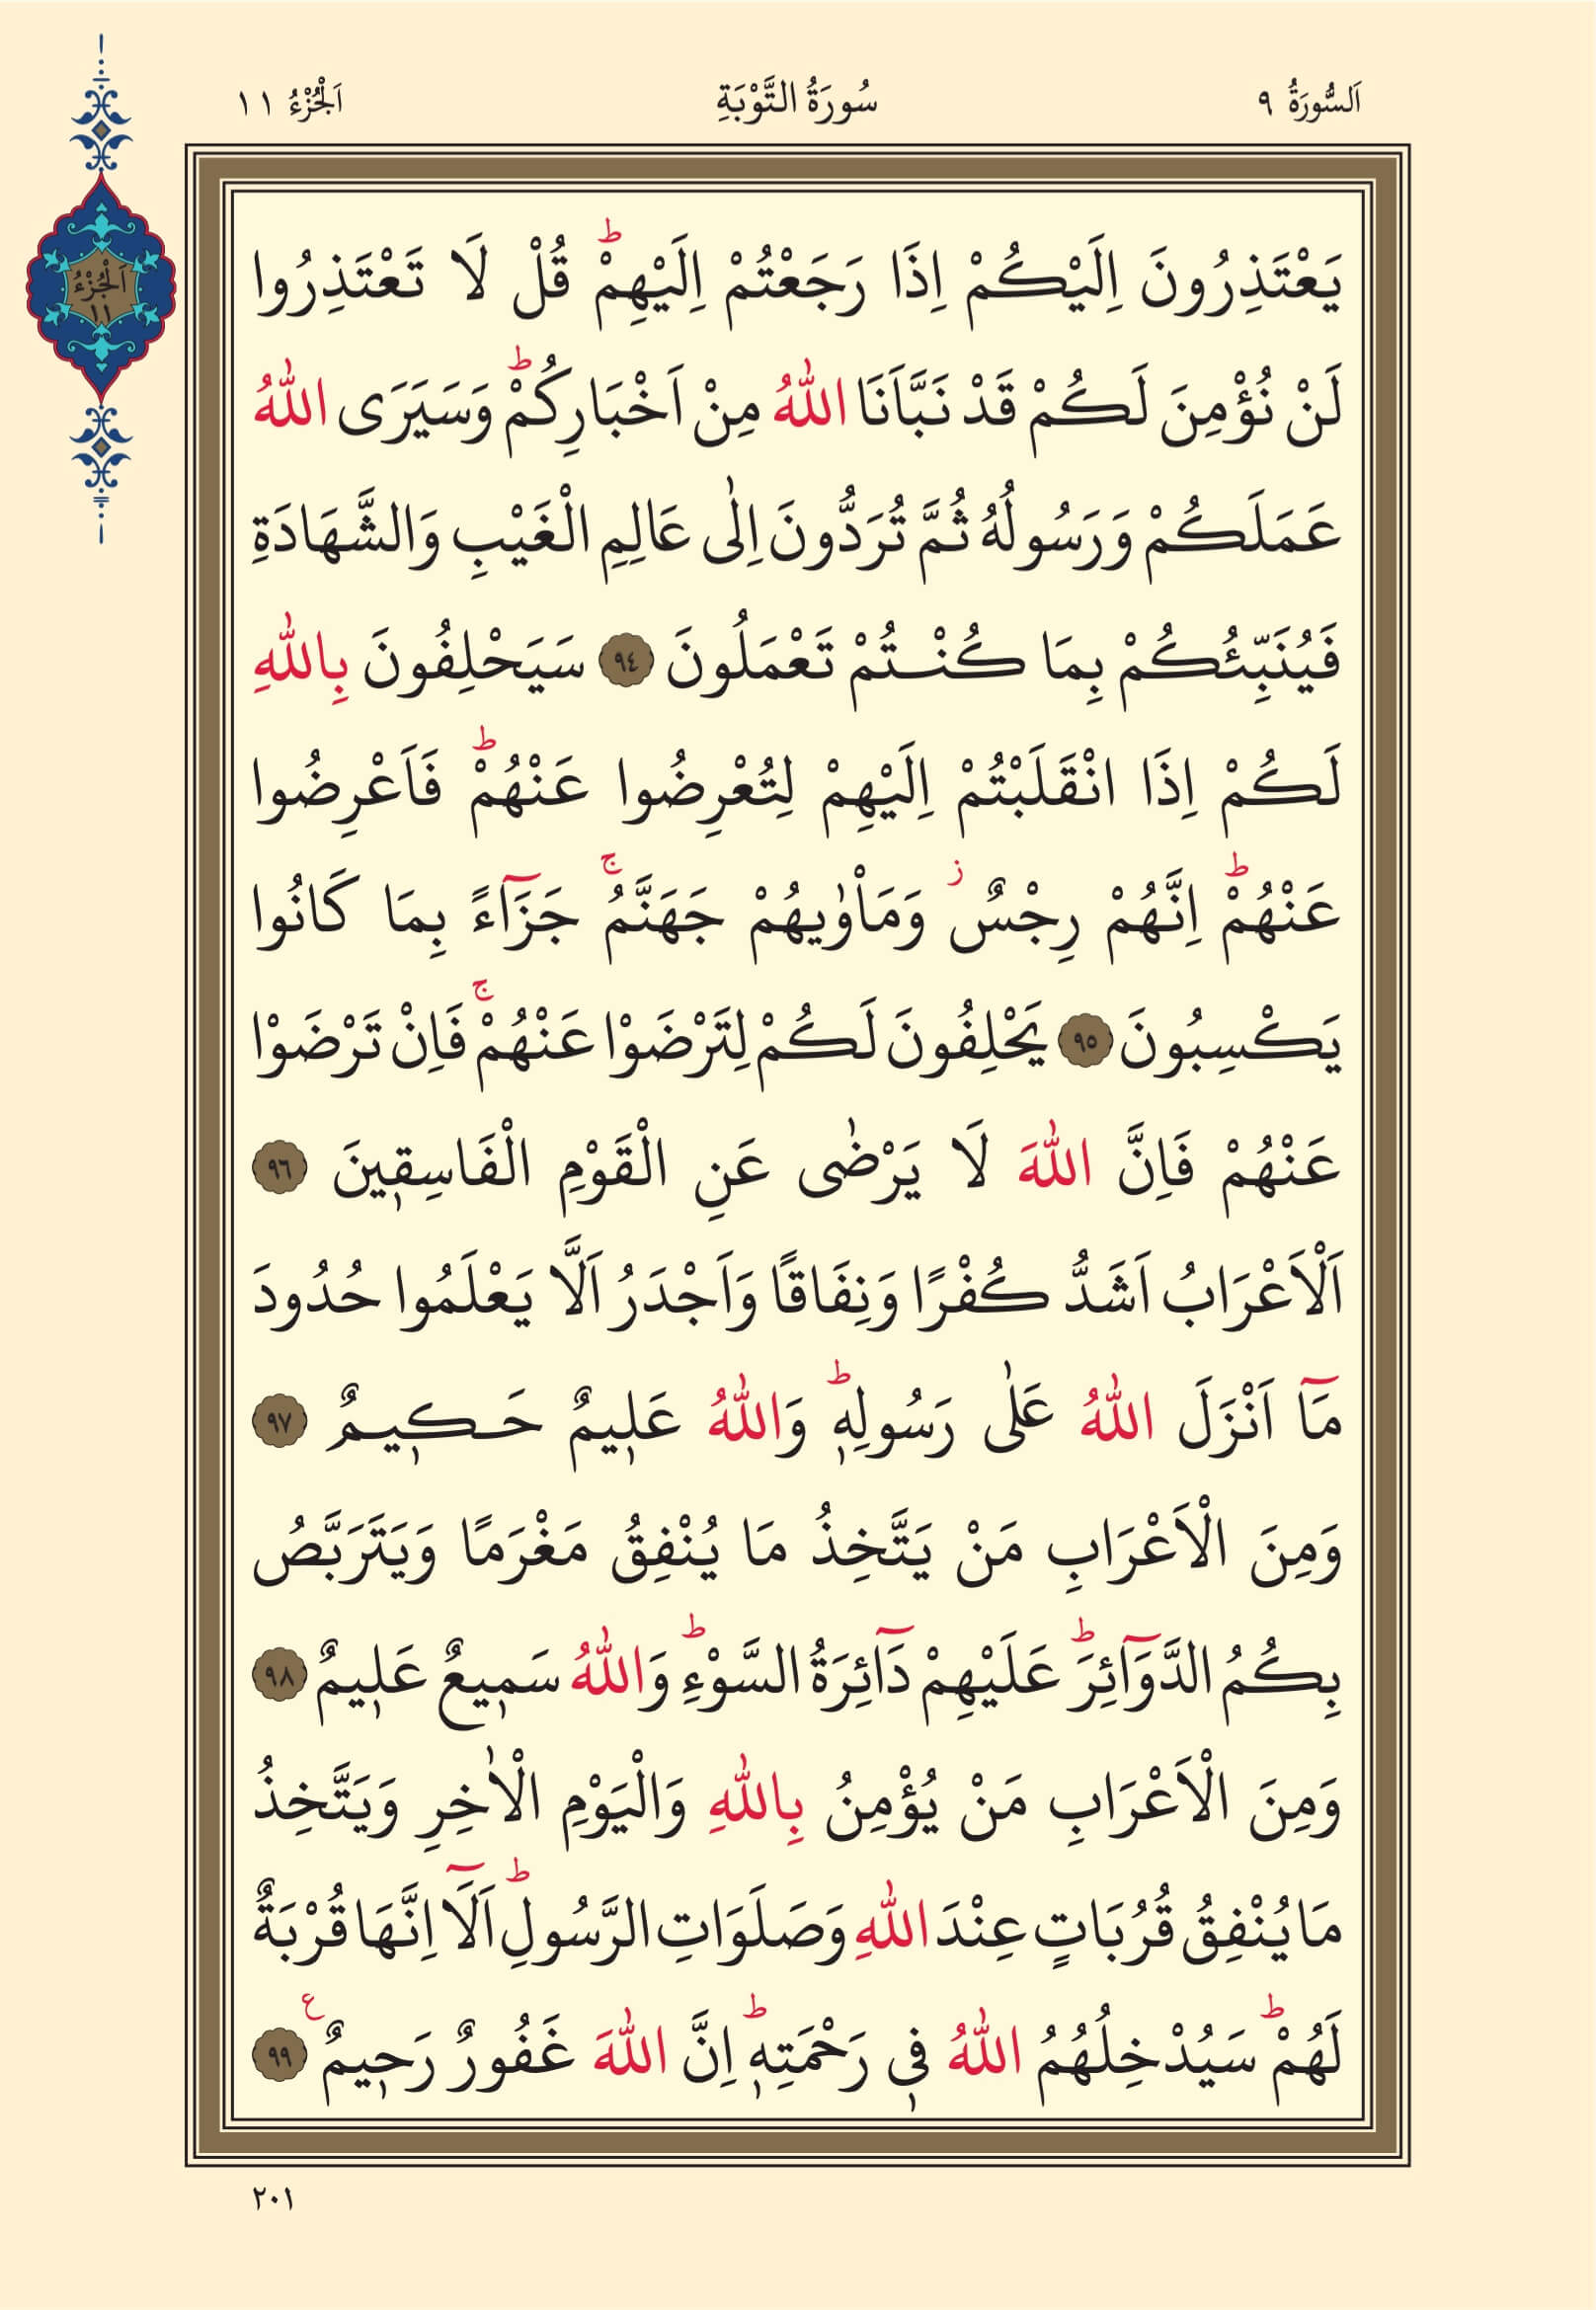 اَلسُّورَةُ ٩ سُورَةُ التَّوْبَةِ اَلْجُزْءُ ١١
اَلْجُزْءُ
١١
يَعْتَذِرُونَ اِلَيْكُمْ اِذَا رَجَعْتُمْ اِلَيْهِمْۜ قُلْ لَا تَعْتَذِرُوا
لَنْ نُؤْمِنَ لَكُمْ قَدْ نَبَّاَنَا اللّٰهُ مِنْ اَخْبَارِكُمْۜ وَسَيَرَى اللّٰهُ
عَمَلَكُمْ وَرَسُولُهُ ثُمَّ تُرَدُّونَ اِلٰى عَالِمِ الْغَيْبِ وَالشَّهَادَةِ
فَيُنَبِّئُكُمْ بِمَا كُنْتُمْ تَعْمَلُونَ ٩٤ سَيَحْلِفُونَ بِاللّٰهِ
لَكُمْ اِذَا انْقَلَبْتُمْ اِلَيْهِمْ لِتُعْرِضُوا عَنْهُمْۜ فَاَعْرِضُوا
عَنْهُمْۜ اِنَّهُمْ رِجْسٌۘ وَمَاْوٰيهُمْ جَهَنَّمُۚ جَزَٓاءً بِمَا كَانُوا
يَكْسِبُونَ ٩٥ يَحْلِفُونَ لَكُمْ لِتَرْضَوْا عَنْهُمْۚ فَاِنْ تَرْضَوْا
عَنْهُمْ فَاِنَّ اللّٰهَ لَا يَرْضٰى عَنِ الْقَوْمِ الْفَاسِق۪ينَ ٩٦
اَلْاَعْرَابُ اَشَدُّ كُفْرًا وَنِفَاقًا وَاَجْدَرُ اَلَّا يَعْلَمُوا حُدُودَ
مَٓا اَنْزَلَ اللّٰهُ عَلٰى رَسُولِه۪ۜ وَاللّٰهُ عَل۪يمٌ حَك۪يمٌ ٩٧
وَمِنَ الْاَعْرَابِ مَنْ يَتَّخِذُ مَا يُنْفِقُ مَغْرَمًا وَيَتَرَبَّصُ
بِكُمُ الدَّوَٓائِرَۜ عَلَيْهِمْ دَٓائِرَةُ السَّوْءِۜ وَاللّٰهُ سَم۪يعٌ عَل۪يمٌ ٩٨
وَمِنَ الْاَعْرَابِ مَنْ يُؤْمِنُ بِاللّٰهِ وَالْيَوْمِ الْاٰخِرِ وَيَتَّخِذُ
مَا يُنْفِقُ قُرُبَاتٍ عِنْدَ اللّٰهِ وَصَلَوَاتِ الرَّسُولِۜ اَلَٓا اِنَّهَا قُرْبَةٌ
لَهُمْۜ سَيُدْخِلُهُمُ اللّٰهُ ف۪ي رَحْمَتِه۪ۜ اِنَّ اللّٰهَ غَفُورٌ رَح۪يمٌ ع ٩٩
٢٠١